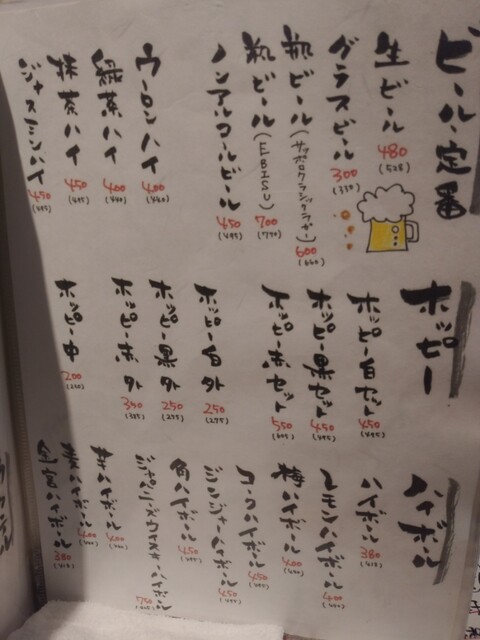 ビール・定番
生ビール 480 (528)
グラスビール 300 (330)
瓶ビール (サッポロクラシックラガー) 600 (660)
瓶ビール (EBISU) 700 (770)
ノンアルコールビール 450 (495)
ウーロンハイ 400 (440)
緑茶ハイ 400 (440)
抹茶ハイ 450 (495)
ジャスミンハイ 450 (495)
ホッピー
ホッピー白セット 450 (495)
ホッピー黒セット 450 (495)
ホッピー赤セット 550 (605)
ホッピー白外 250 (275)
ホッピー黒外 250 (275)
ホッピー赤外 350 (385)
ホッピー中 200 (220)
ハイボール
ハイボール 380 (418)
レモンハイボール 400 (440)
梅ハイボール 400 (440)
コークハイボール 450 (495)
ジンジャーハイボール 450 (495)
角ハイボール 450 (495)
ハイボール 750
ハイボール 400 (440)
ハイボール 400 (440)
ハイボール 380 (418)